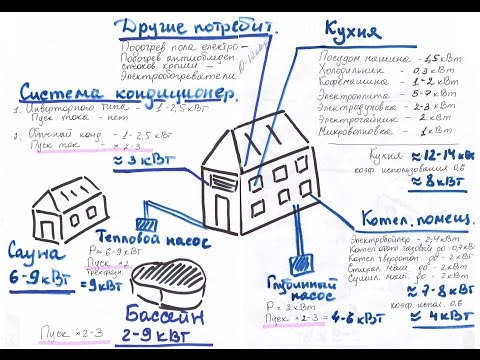 Другие потребит.
Подогрев пола електро —
Подогрев антиоблиден.
стоков крыши —
Электрообогреватели
Система кондиционер.
1. Инверторного типа - 1-2,5 кВт
Пуск тока - нет
2. Обычный конд. - 1-2,5 кВт
Пуск ток - × 2-3
≈ 3 кВт
Кухня
Посудом машина - 1,5 кВт
Холодильник - 0,3 кВт
Кофемашина - 1-2 кВт
Электроплита - 5-7 кВт
Электродуховка - 2-3 кВт
Электрочайник - 2 кВт
Микроволновка - 1 кВт
Кухня ≈ 12-14 кВт
коэф. использования 0,6
≈ 8 кВт
Сауна
6-9 кВт
Тепловой насос
P = 6-9 кВт
Пуск ×2
трехфазн.
= 9 кВт
Бассейн
2-9 кВт
Пуск ×2-3
Глубинный
насос
P = 2 кВт
Пуск ×2-3 = 4-6 кВт
Котел. помещ.
Электробойлер - 2-4 кВт
Котел отоп газовый до - 0,7 кВт
Котел твердотоп до - 2 кВт
Стирал маш. до - 2 кВт
Сушил маш. до - 2 кВт
≈ 7-8 кВт
коэф. испол. 0,6
≈ 4 кВт